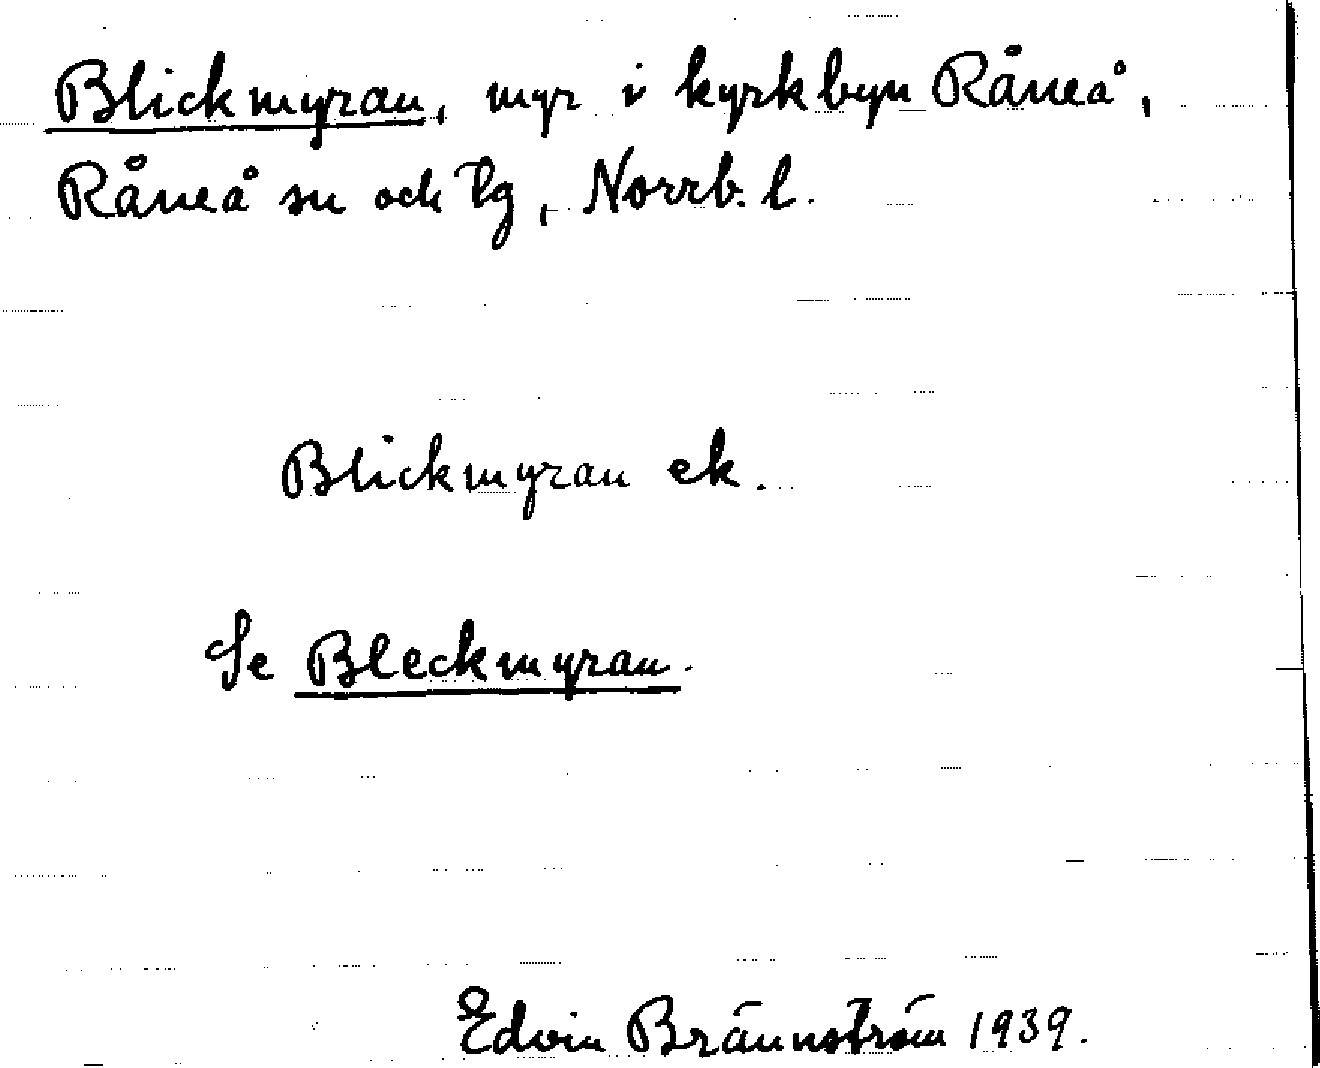 Blickmyran, myr i kyrkbyn Råneå,
Råneå sn och tg, Norrb. l.
Blickmyran ek.
Se Bleckmyran.
Edvin Brännström 1939.